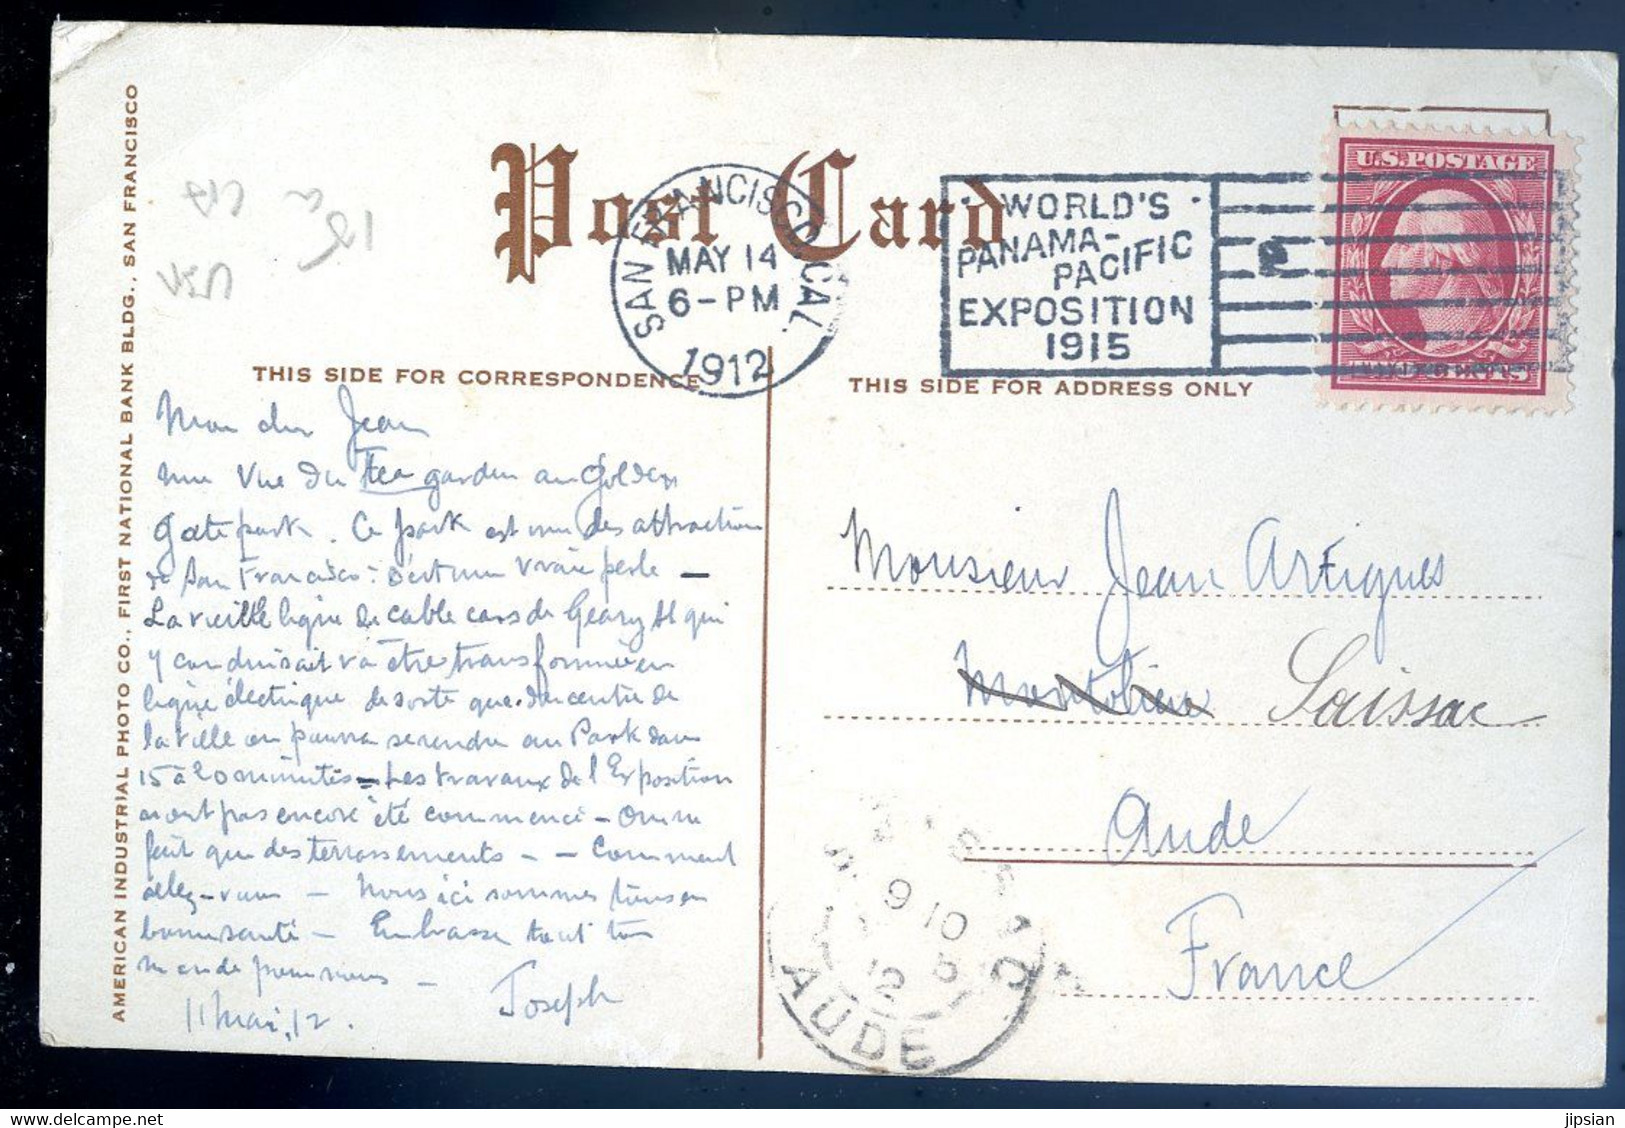 Post Card
SAN FRANCISCO, CAL.
MAY 14
6-PM
1912
WORLD'S
PANAMA-
PACIFIC
EXPOSITION
1915
U.S. POSTAGE
AMERICAN INDUSTRIAL PHOTO CO., FIRST NATIONAL BANK BLDG., SAN FRANCISCO
USA
THIS SIDE FOR CORRESPONDENCE
THIS SIDE FOR ADDRESS ONLY
Mon cher Jean
une vue du tea garden au Golden
gate park. Ce park est une des attraction
de San Francisco: c'est une vraie perle -
La vieille ligne de cable cars de Geary St qui
y conduisait va être transformée en
ligne électrique de sorte que du centre de
la ville on pourra se rendre au Park dans
15 à 20 minutes - Les travaux de l'Exposition
n'ont pas encore été commencé - On ne
fait que des terrassements - - Comment
allez-vous - Nous ici sommes tous en
bonne santé - Embrasse tout ton
monde pour nous -
Joseph
11 Mai, 12.
Monsieur Jean Artigues
Montolieu Saissac
Aude
France
9 10
12 5
AUDE
jipsian